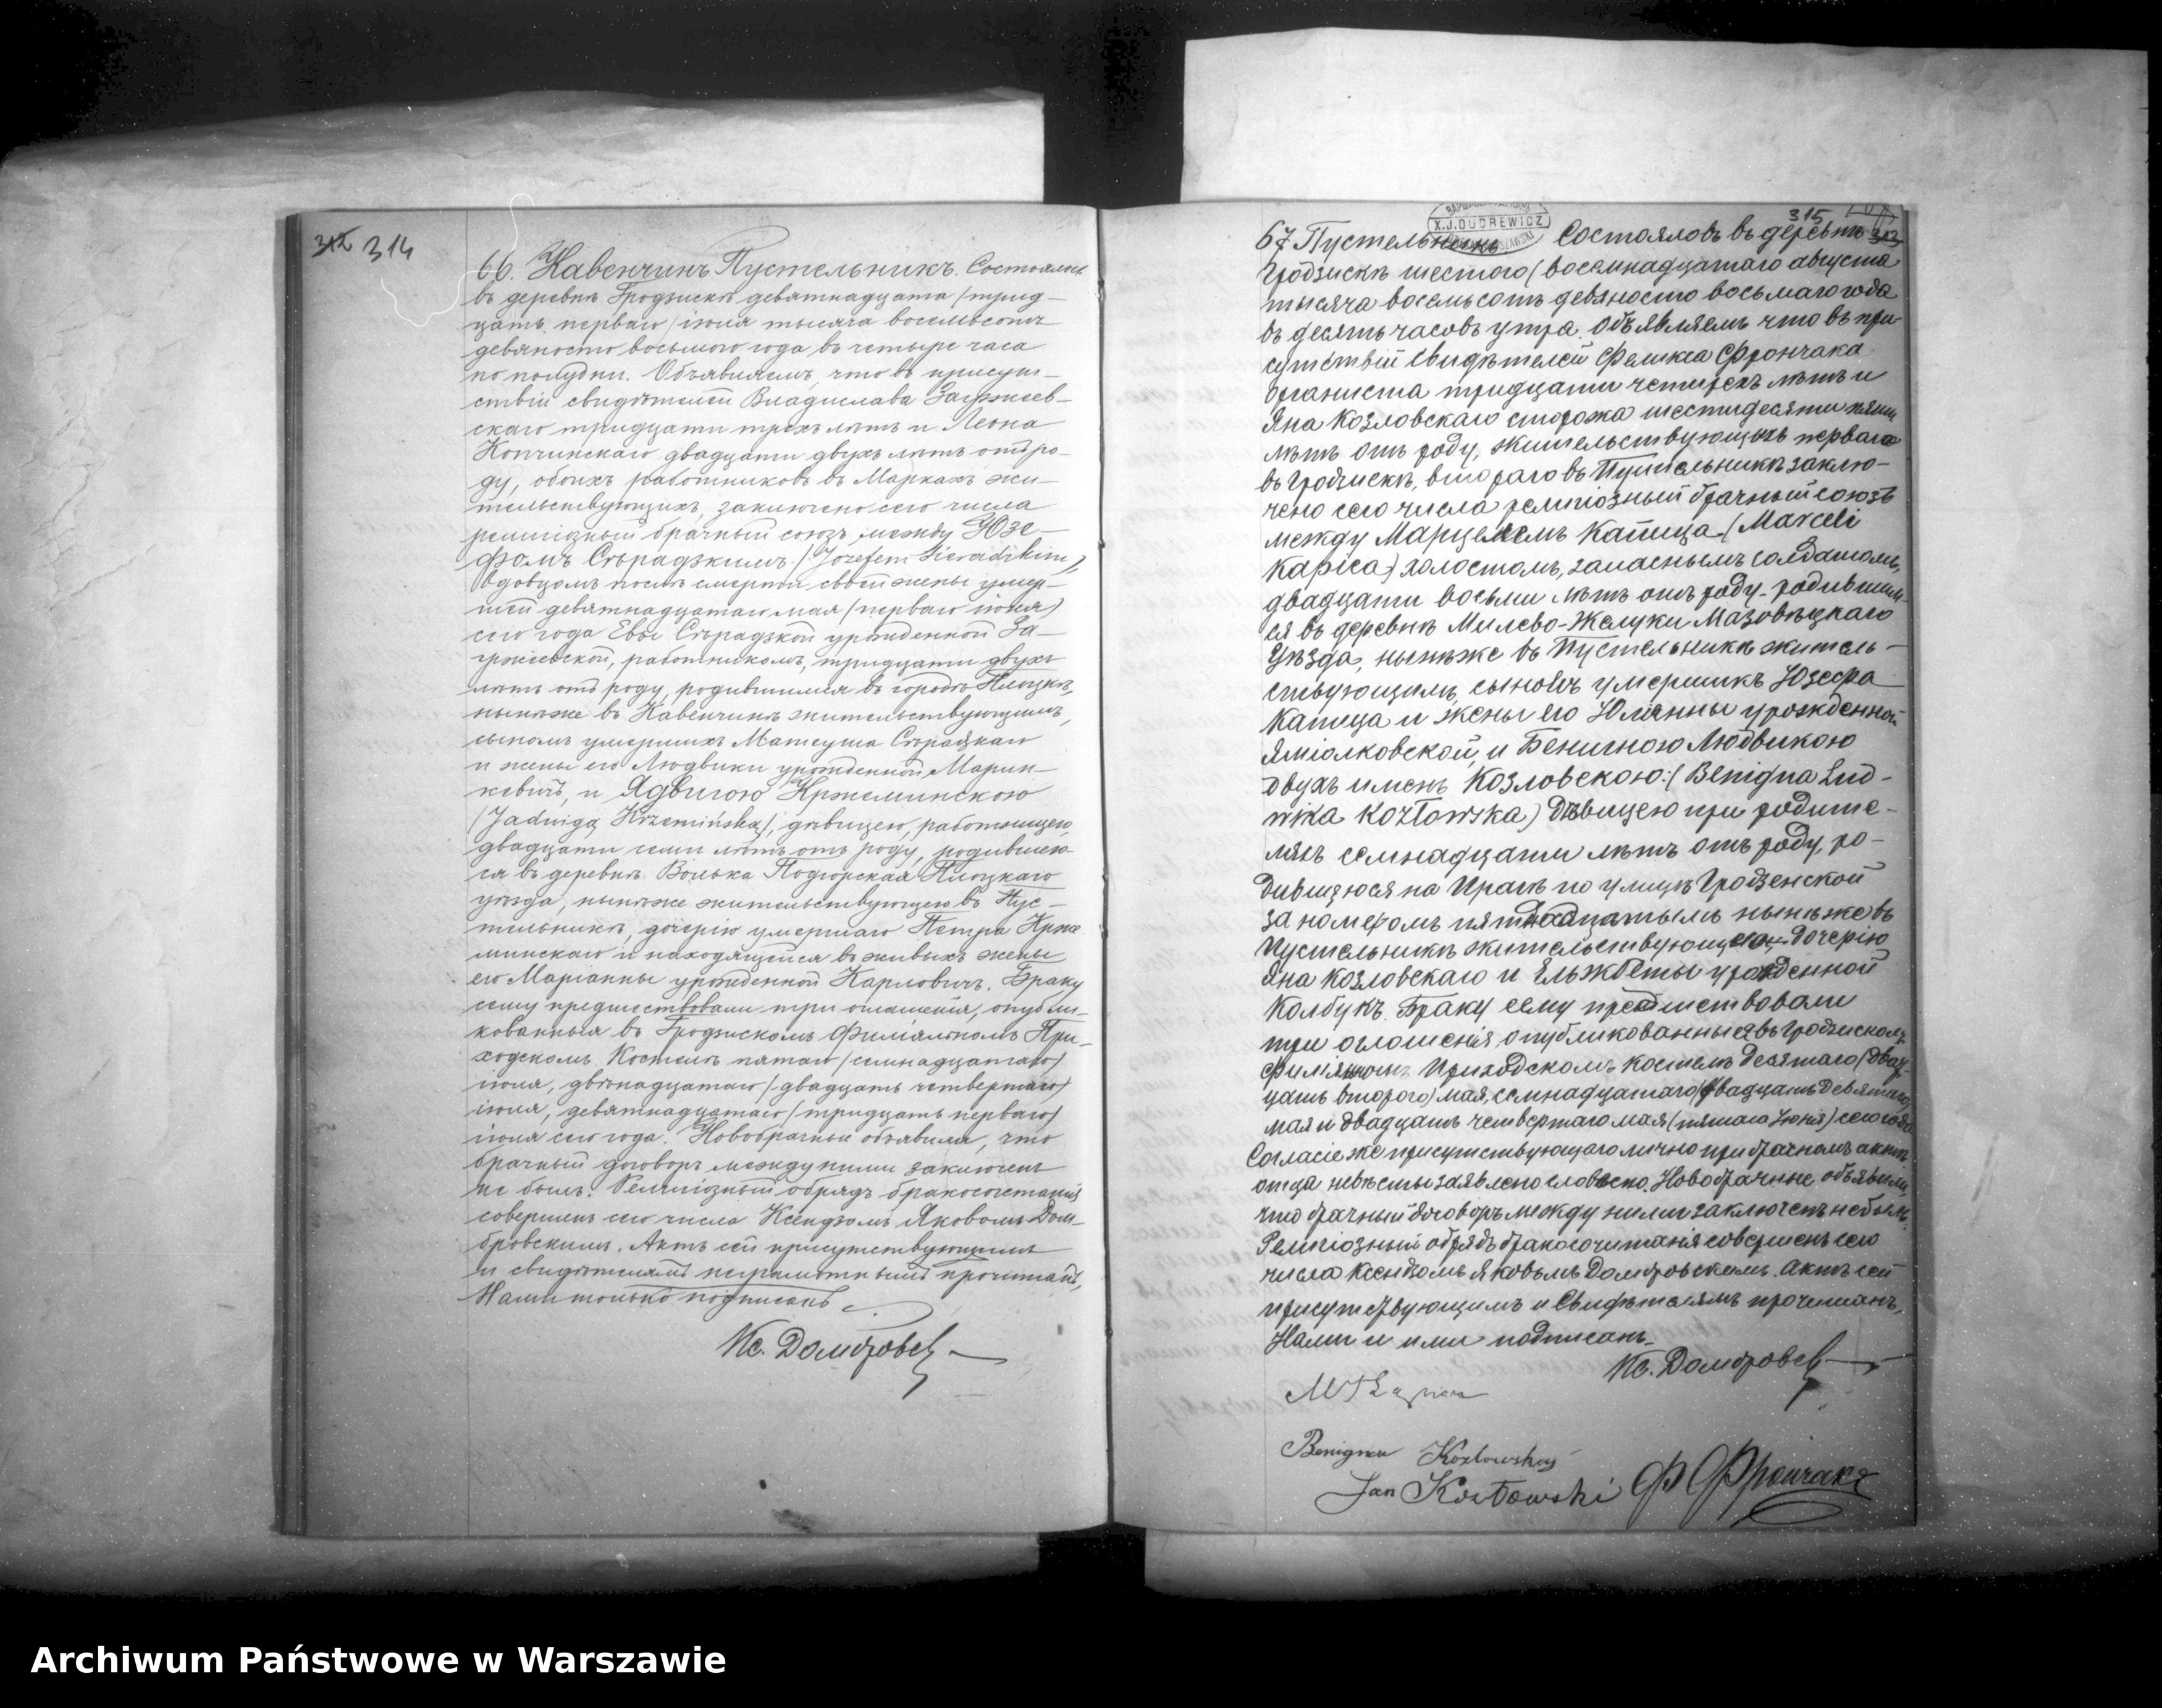 312 314
66. Кавенчинъ Пустельникъ. Состоялось
въ деревнѣ Гродзискѣ девятнадцата /трид-
цать перваго/ іюля тысяча восемьсотъ
девяносто восьмого года въ четыре часа
по полудни. Объявляемъ, что въ присут-
ствіи свидѣтелей Владислава
скаго тридцати трехъ лѣтъ и Леона
Копчинскаго двадцати двухъ лѣтъ отъ ро-
ду, обоихъ работниковъ въ Маркахъ жи-
тельствующихъ, заключено сего числа
религіозный брачный союзъ между Юзе-
фомъ Сѣрадзкимъ /Jozefem Sieradzkim/
вдовцомъ послѣ смерти своей жены умер-
шей девятнадцатаго мая /перваго іюня/
сего года Евы Сѣрадзкой урожденной За-
гржеевской, работникомъ, тридцати двухъ
лѣтъ отъ роду, родившимся въ городѣ Плоцкѣ,
нынѣже въ Кавенчинѣ жительствующимъ,
сыномъ умершихъ Матеуша Сѣрадзкаго
и жены его Людвики урожденной Марцин-
кевичъ, и Ядвигою Кржеминскою
/Jadwigą Krzemińską/, дѣвицею, работницею,
двадцати семи лѣтъ отъ роду, родившею-
ся въ деревнѣ Волька Подгорская Плоцкаго
уѣзда, нынѣже жительствующею въ Пус-
тельникѣ, дочерью умершаго Петра Крже-
минскаго и находящейся въ живыхъ жены
его Маріанны урожденной Карловичъ. Браку
сему предшествовали три оглашенія, опубли-
кованныя въ Гродзискомъ Филіяльномъ При-
ходскомъ Костелѣ пятаго /семнадцатаго/
іюля, двѣнадцатаго /двадцать четвертаго/
іюля, девятнадцатаго /тридцать перваго/
іюля сего года. Новобрачные объявили, что
брачный договоръ между ними заключенъ
не былъ. Религіозный обрядъ бракосочетанія
совершенъ сего числа Ксендзомъ Яковомъ Дом-
бровскимъ. Актъ сей присутствующимъ
и свидѣтелямъ неграмотнымъ прочитанъ,
Нами только подписанъ.
Кс. Домбровск
315
67 Пустельникъ Состоялось въ деревнѣ 313
X.J.DUDREWICZ
Гродзискѣ шестого (восемнадцатаго августа
тысяча восемьсотъ девяносто восьмаго года
въ десять часовъ утра. Объявляемъ что въ при-
сутствіи Свидѣтелей Феликса Фрончака
Органиста тридцати четырехъ лѣтъ и
Яна Козловскаго сторожа шестидесяти пяти
лѣтъ отъ роду, жительствующихъ перваго
въ Гродзискѣ, втораго въ Пустельникѣ заклю-
чено сего числа религіозный брачный союзъ
между Марцелемъ Капица (Marceli
Kapica) холостомъ, запаснымъ солдатомъ,
двадцати восьми лѣтъ отъ роду родившим-
ся въ деревнѣ Милево-Жалуки Мазовѣцкаго
Уѣзда, нынѣже въ Пустельникѣ житель-
ствующимъ, сыномъ умершихъ Юзефа
Капица и жены его Юліянны урожденной
Яміолковской, и Бенигною Людвикою
двухъ именъ Козловскою: (Benigna Lud-
wika Kozłowska) дѣвицею при родите-
ляхъ семнадцати лѣтъ отъ роду, ро-
дившеюся на Прагѣ по улицѣ Гродзенской
за номеромъ пятнадцатымъ нынѣже въ
Пустельникѣ жительствующею, дочерію
Яна Козловскаго и Ельжбеты урожденной
Колбукъ. Браку сему предшествовали
три оглашенія опубликованныя въ Гродзискомъ
Филіяльномъ Приходскомъ Костелѣ десятаго (двад-
цать второго) мая, семнадцатаго (двадцать девятаго)
мая и двадцать четвертаго мая (пятаго Іюня) сего года
Согласіе же присутствующаго лично при брачномъ актѣ
отца невѣсты заявлено словесно. Новобрачные объявили,
что брачный договоръ между ними заключенъ не былъ.
Религіозный обрядъ бракосочитанія совершенъ сего
числа Ксендзомъ Яковымъ Домбровскимъ. Актъ сей
присутствующимъ и Свидѣтелямъ прочитанъ,
Нами и ими подписанъ.
Кс. Домбровск
Benigna Kozlowska
Jan Kozłowski Ф Фрончакъ
Archiwum Państwowe w Warszawie